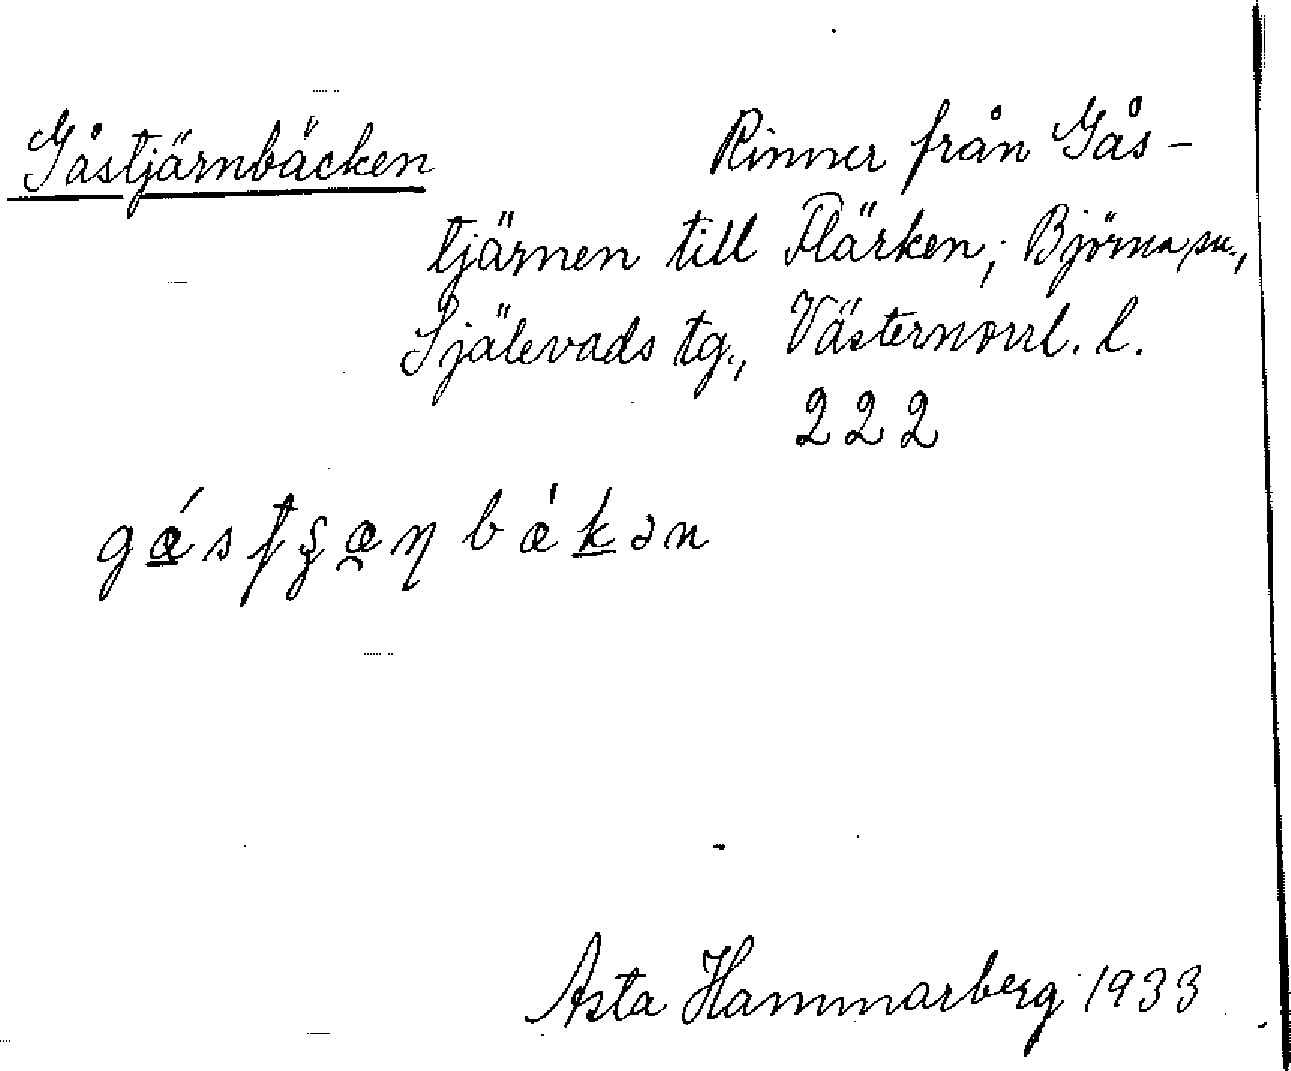 Gåstjärnbäcken Rinner från Gås-
tjärnen till Flärken; Björna sn.,
Själevads tg., Västernorrl. l.
222
Asta Hammarberg 1933